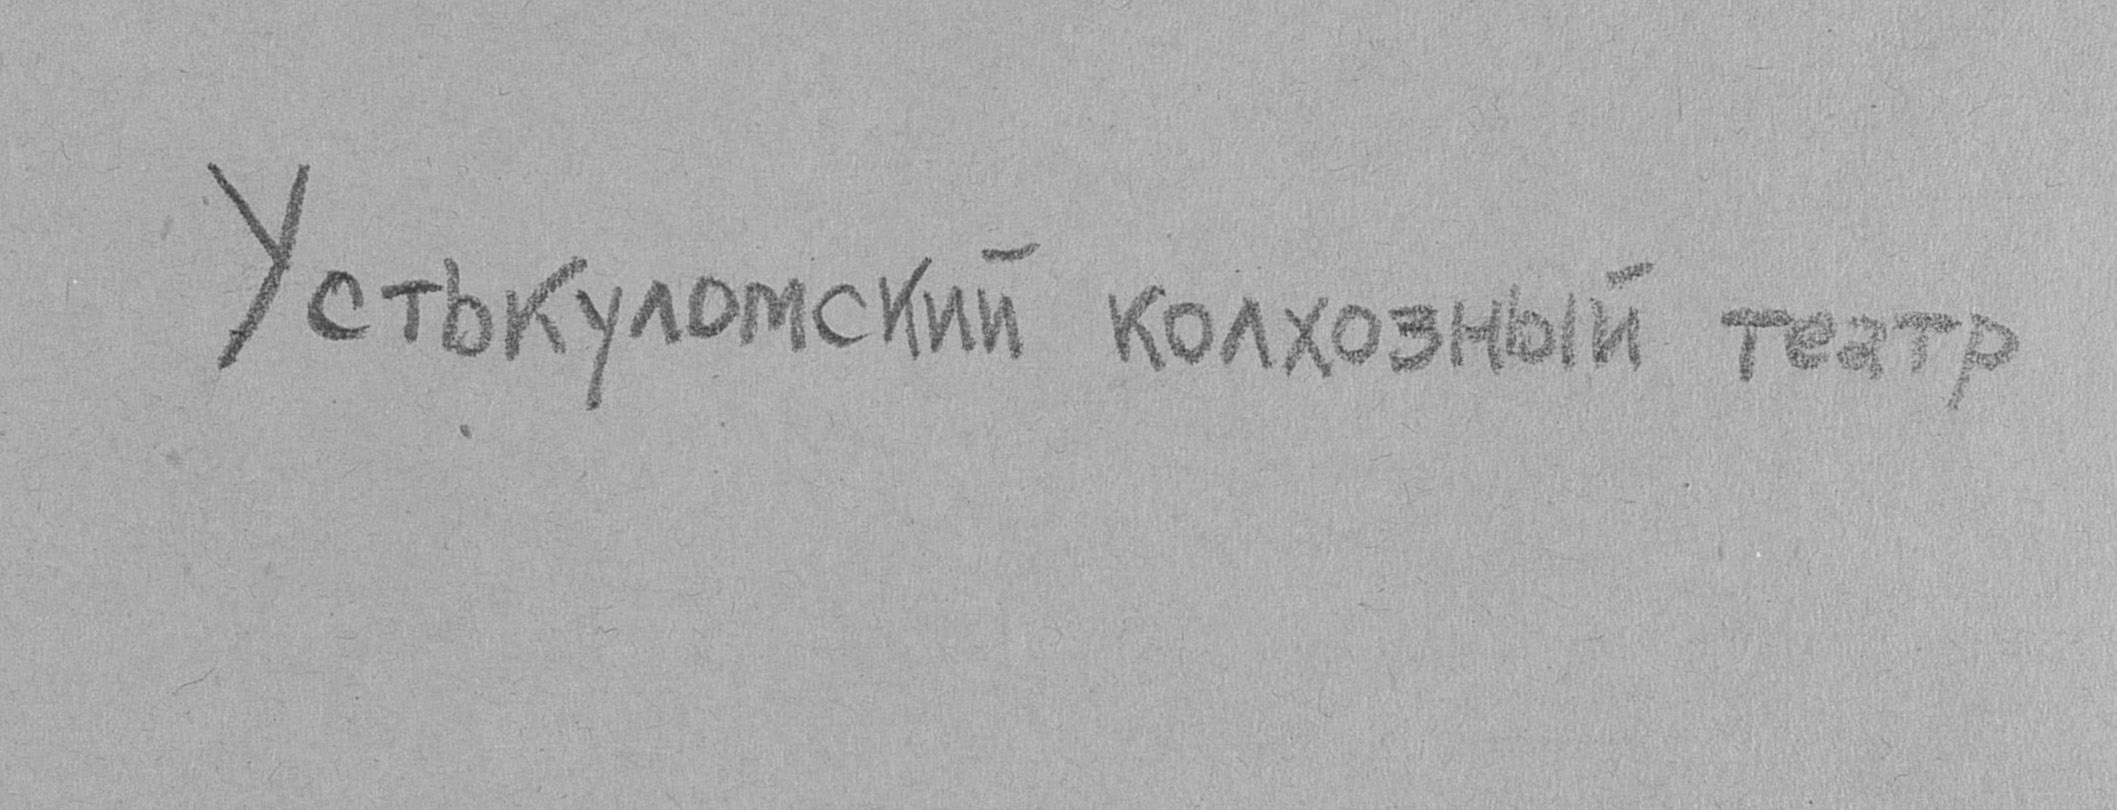 Устькуломский колхозный театр